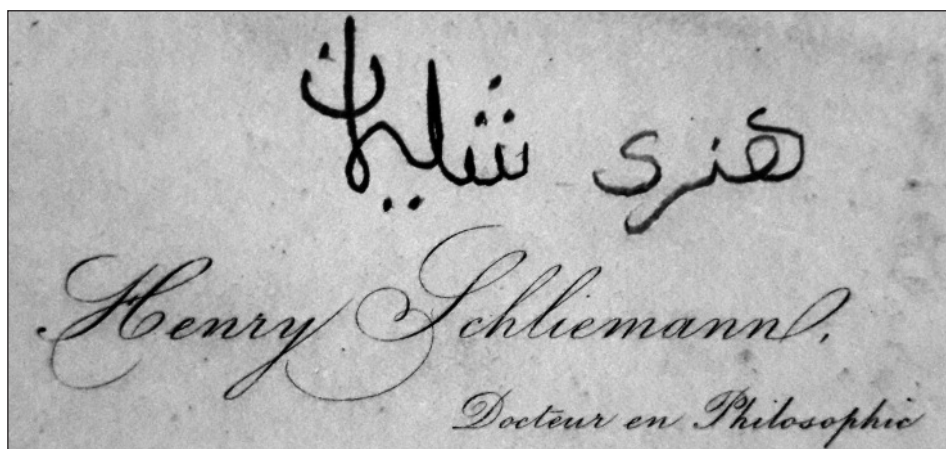 هنرى شليمان
Henry Schliemann.
Docteur en Philosophie